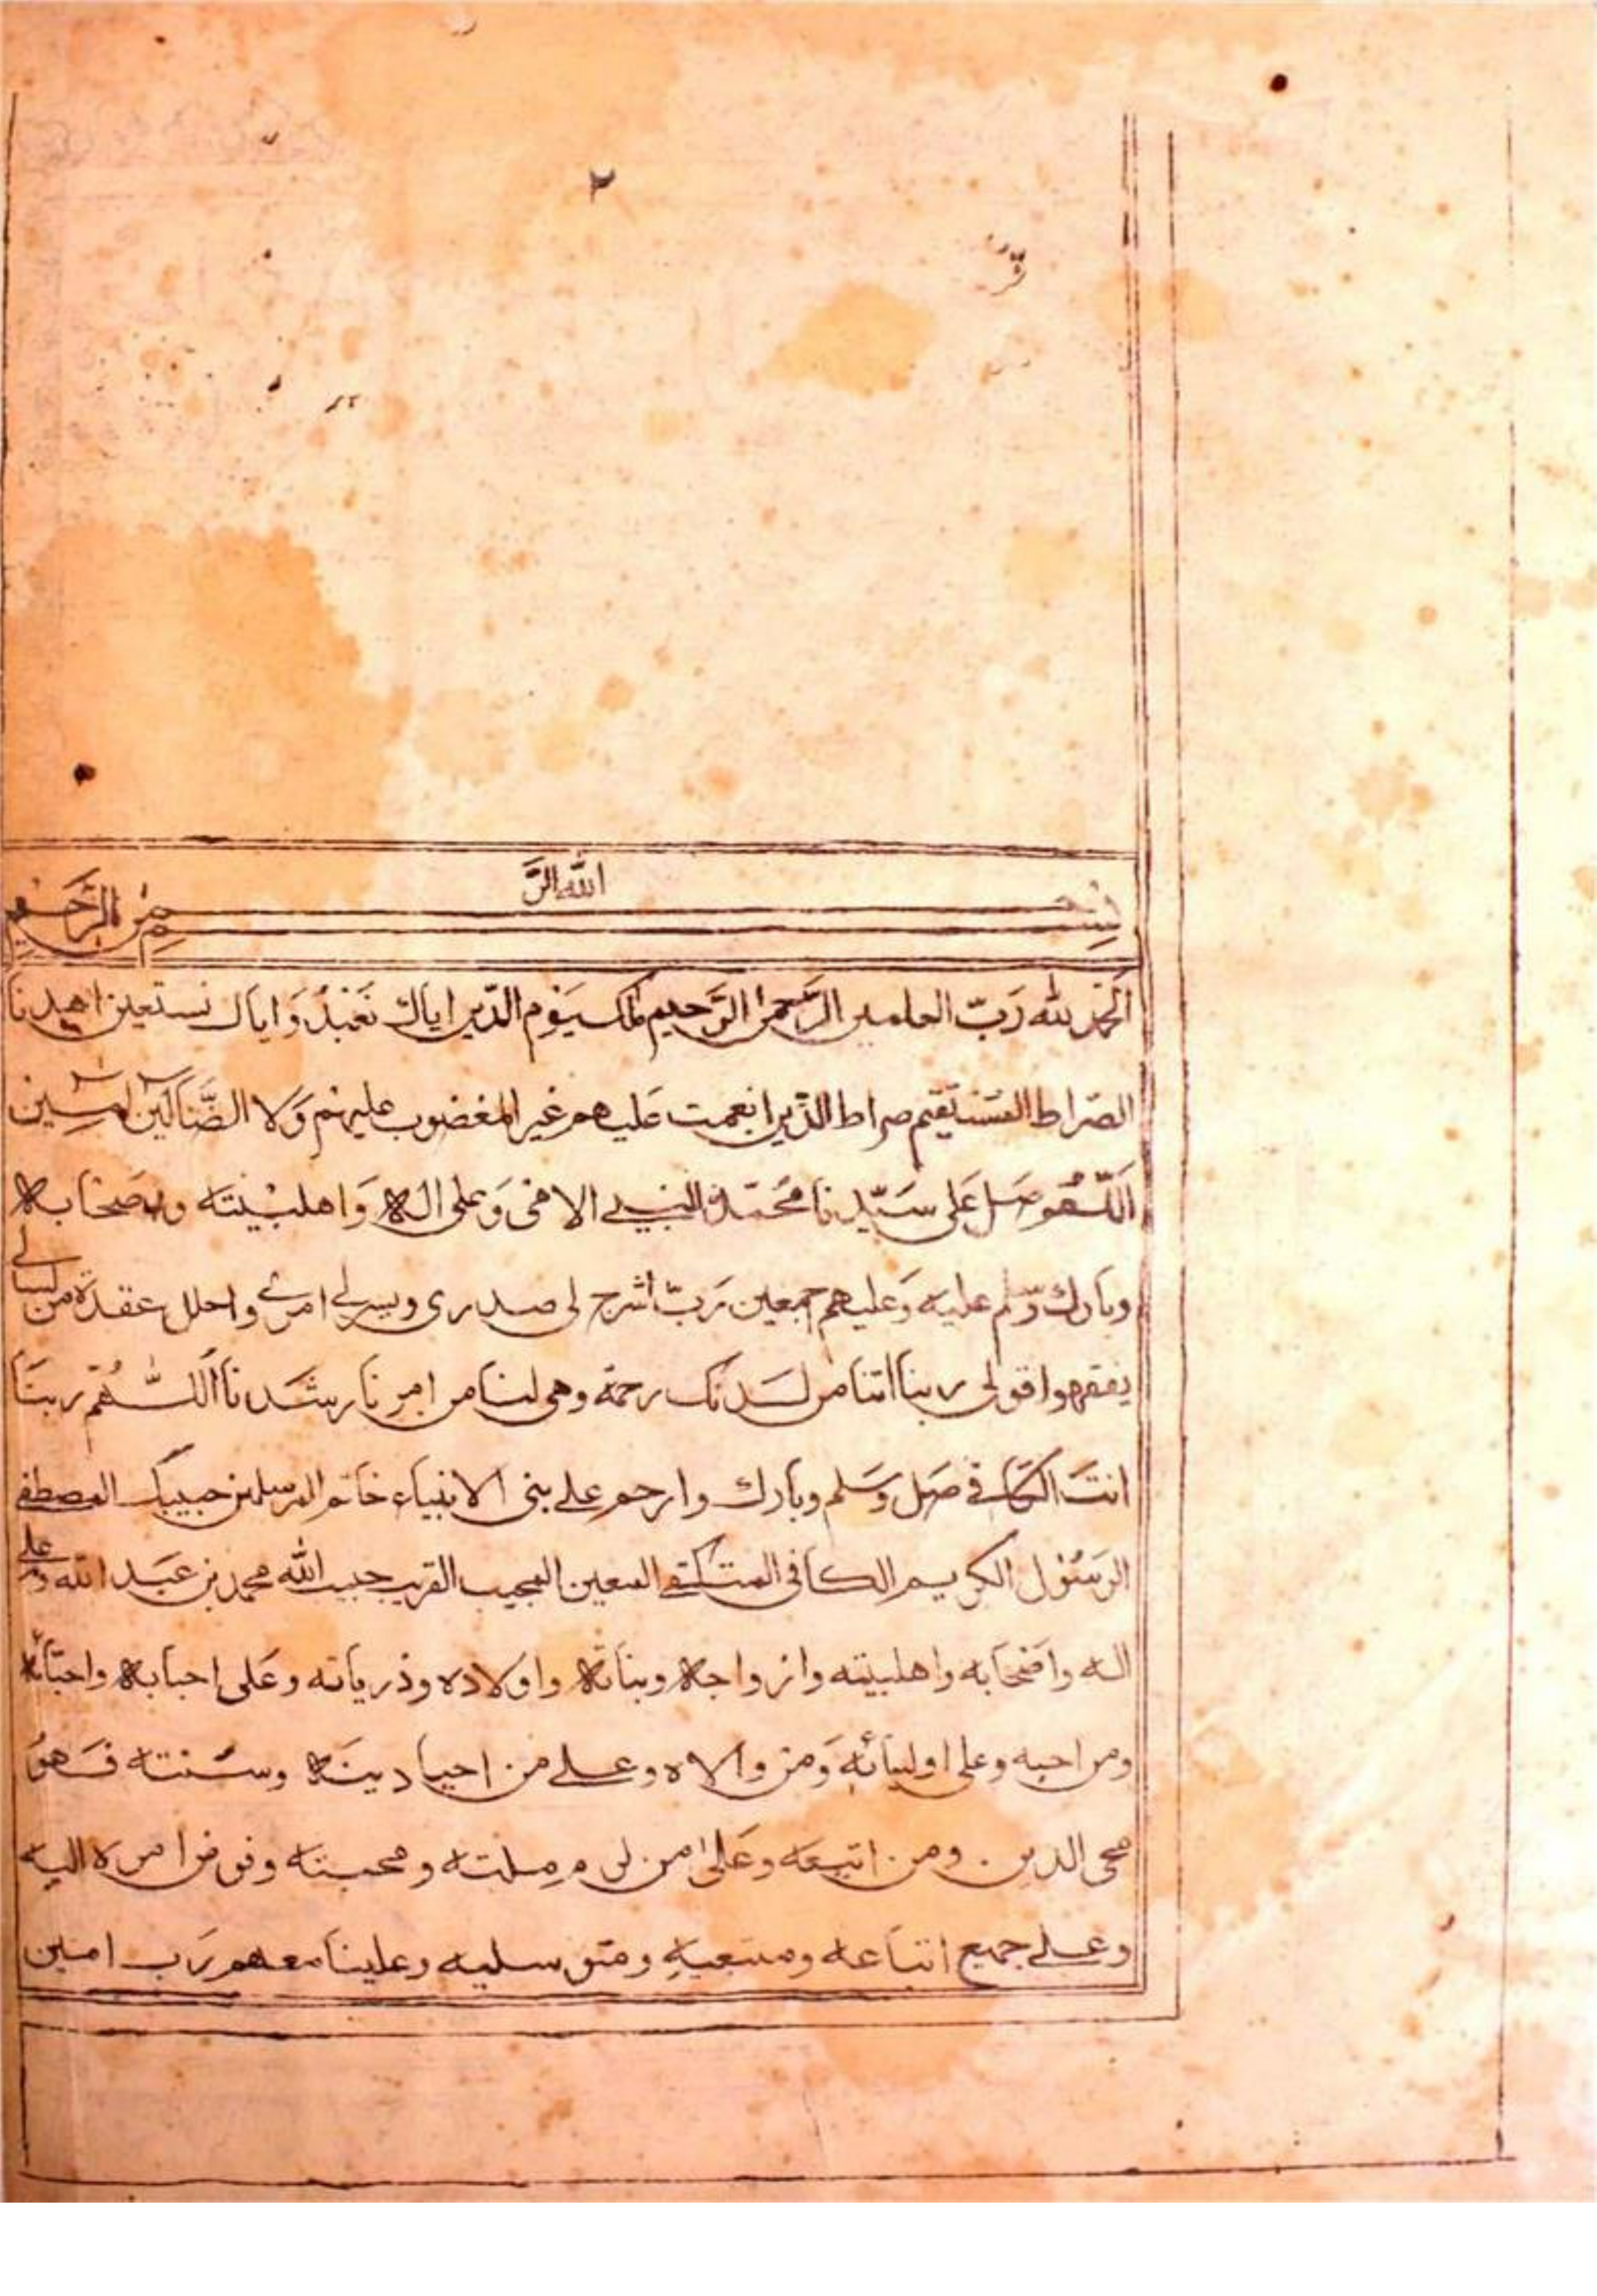 ٢
بسم الله الرحمن الرحيم
اَلحمد لله رَبّ العلمين الرَّحمٰن الرَّحيم مٰلك يَوْم الدّين اياك نَعْبُدُ وَاياك نستعين اهدنا
الصّراط المُسْتَقيم صراط الذّين انعمت عَليهم غير المغضوب عليهم وَلا الضَّالّين اٰمِين
اَللّهُم صَل عَلى سَيّدنا مُحَمّدِ النبي الامى وَعلى الهٖ وَاهلبَيْتَه وصحابه
وبارك وسلم عليه وَعليهم اجمعين رَبّ اشرح لى صدرى ويسرلى امرى واحلل عقدَة من لسانى
يفقهوا قولى ربنا اتنا من لَدنك رحمة وهى لنا من امرِنا رشَدنا اَللّٰهُمّ ربنَا
انتَ الكافى صَل وَسَلم وبارك وارحم على بنى الانبياء خاتم المرسلين حبيبك المصطفى
الرَسُوْل الكريم الكافى المتكفى المعين المجيب القريب حبيب الله محمد بن عَبَد الله وعلى
اله واصْحَابه واهلبيته وازواجهٖ وبناتهٖ واولاده وذرياته وعَلى احبابهٖ واحبّائهٖ
ومن احبه وعلى اوليائه وَمَن والاه وعلى مَن احيا دينَهٖ وسُنته فَهوُ
محى الدين ومن اتبعَه وعَلى من لزم مِلته ومحبته وفوض امره اليه
وعلى جميع اتباعه ومتبعيهِ ومتوسليه وعلينا معهم رَب امين